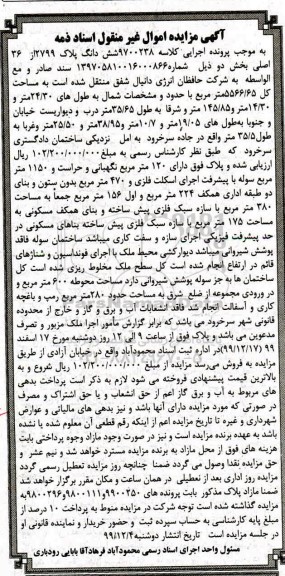 آگهی مزایده اموال غیر منقول اسناد ذمه
به موجب پرونده اجرایی کلاسه ۹۷۰۰۲۳۸ شش دانگ پلاک ۲۷۹۹ از ۳۶
اصلی بخش دو ذیل شماره ۱۳۹۷۰۵۸۱۰۰۱۶۰۰۰۸۶۶ سند صادر و مع
الواسطه به شرکت حافظان انرژی دانیال شفق منتقل شده است به مساحت
کل ۵۵۶۶/۶۵ متر مربع با حدود و مشخصات شمال به طول های ۲۴/۳۰ متر و
۱۴/۳۰ متر و ۱۴۵/۸۵ متر و شرقا به طول ۳۵/۶۵ متر درب و دیواریست خیابان
و جنوبا به طول های ۱۹/۰۵ متر و ۱۰/۷ متر و ۳۸/۹۵ متر و ۲۵/۵۰ متر و غربا به
طول ۳۵/۵ متر واقع در جاده سرخرود به امل نزدیکی ساختمان دادگستری
سرخرود که طبق نظر کارشناس رسمی به مبلغ ۱۰۲/۲۰۰/۰۰۰/۰۰۰ ریال
ارزیابی شده و پلاک فوق دارای ۱۲۰ متر مربع نگهبانی و حراست و ۱۱۵۰ متر
مربع سوله با پیشرفت اجرای اسکلت فلزی و ۴۷۰ متر مربع بدون ستون و بنای
دو طبقه اداری همکف ۲۲۴ متر مربع و اول ۱۵۶ متر مربع جمعاً به مساحت
۳۸۰ متر مربع با سازه سبک فلزی پیش ساخته و بنای همکف مسکونی به
مساحت ۱۷۵ متر مربع با سازه سبک فلزی پیش ساخته بناهای مسکونی در
حد پیشرفت فیزیکی اجرای سازه و سفت کاری میباشد ساختمان سوله فاقد
پوشش شیروانی میباشد دیوارکشی محیط ملک با اجرای فونداسیون و شناژهای
قائم در ارتفاع انجام شده است کل سطح ملک مخلوط ریزی شده است کل
ساختمان ها به جز سوله پوشش شیروانی دارد مساحت محوطه ۶۰۰ متر مربع و
در ورودی مجموعه از ضلع شرق به مساحت حدود ۲۸۰ متر مربع رمپ و باغچه
کاری و آسفالت انجام شد فاقد انشعابات آب و برق و گاز و خارج از محدوده
قانونی شهر سرخرود می باشد که برابر گزارش مأمور اجرا ملک مزبور و تصرف
مدعوین می باشد و پلاک فوق از ساعت ۹ الی ۱۲ روز دوشنبه مورخ ۱۷ اسفند
۹۹ (۹۹/۱۲/۱۷) در اداره ثبت اسناد محمودآباد واقع در خیابان آزادی از طریق
مزایده به فروش می‌رسد مزایده از مبلغ ۱۰۲/۲۰۰/۰۰۰/۰۰۰ ریال شروع و به
بالاترین قیمت پیشنهادی فروخته می شود لازم به ذکر است پرداخت بدهی
های مربوط به آب و برق گاز اعم از حق انشعاب و یا حق اشتراک و مصرف
در صورتی که مورد مزایده دارای آنها باشد و نیز بدهی های مالیاتی و عوارض
شهرداری و غیره تا تاریخ مزایده اعم از اینکه رقم قطعی آن معلوم شده یا نشده
باشد به عهده برنده مزایده است و نیز در صورت وجود مازاد وجوه پرداختی بابت
هزینه های فوق از محل مازاد به برنده مزایده مسترد خواهد شد و نیم عشر و
حق مزایده نقدا وصول می گردد ضمنا چنانچه روز مزایده تعطیل رسمی گردد
مزایده روز اداری بعد از تعطیلی در همان ساعت و مکان مقرر برگزار خواهد شد
ضمنا مازاد پلاک مذکور بابت پرونده های ۹۹۰۰۲۵۰ و ۹۸۰۰۱۱۱ و ۹۸۰۰۲۹۶ به
مزایده گذاشته شده است توجه شرکت در مزایده منوط به پرداخت ۱۰ درصد از
مبلغ پایه کارشناسی به حساب سپرده ثبت و حضور خریدار و نماینده قانونی او
در جلسه مزایده است تاریخ انتشار دوشنبه ۹۹/۱۲/۴
مسئول واحد اجرای اسناد رسمی محمودآباد فرهادآقا بابایی رودباری